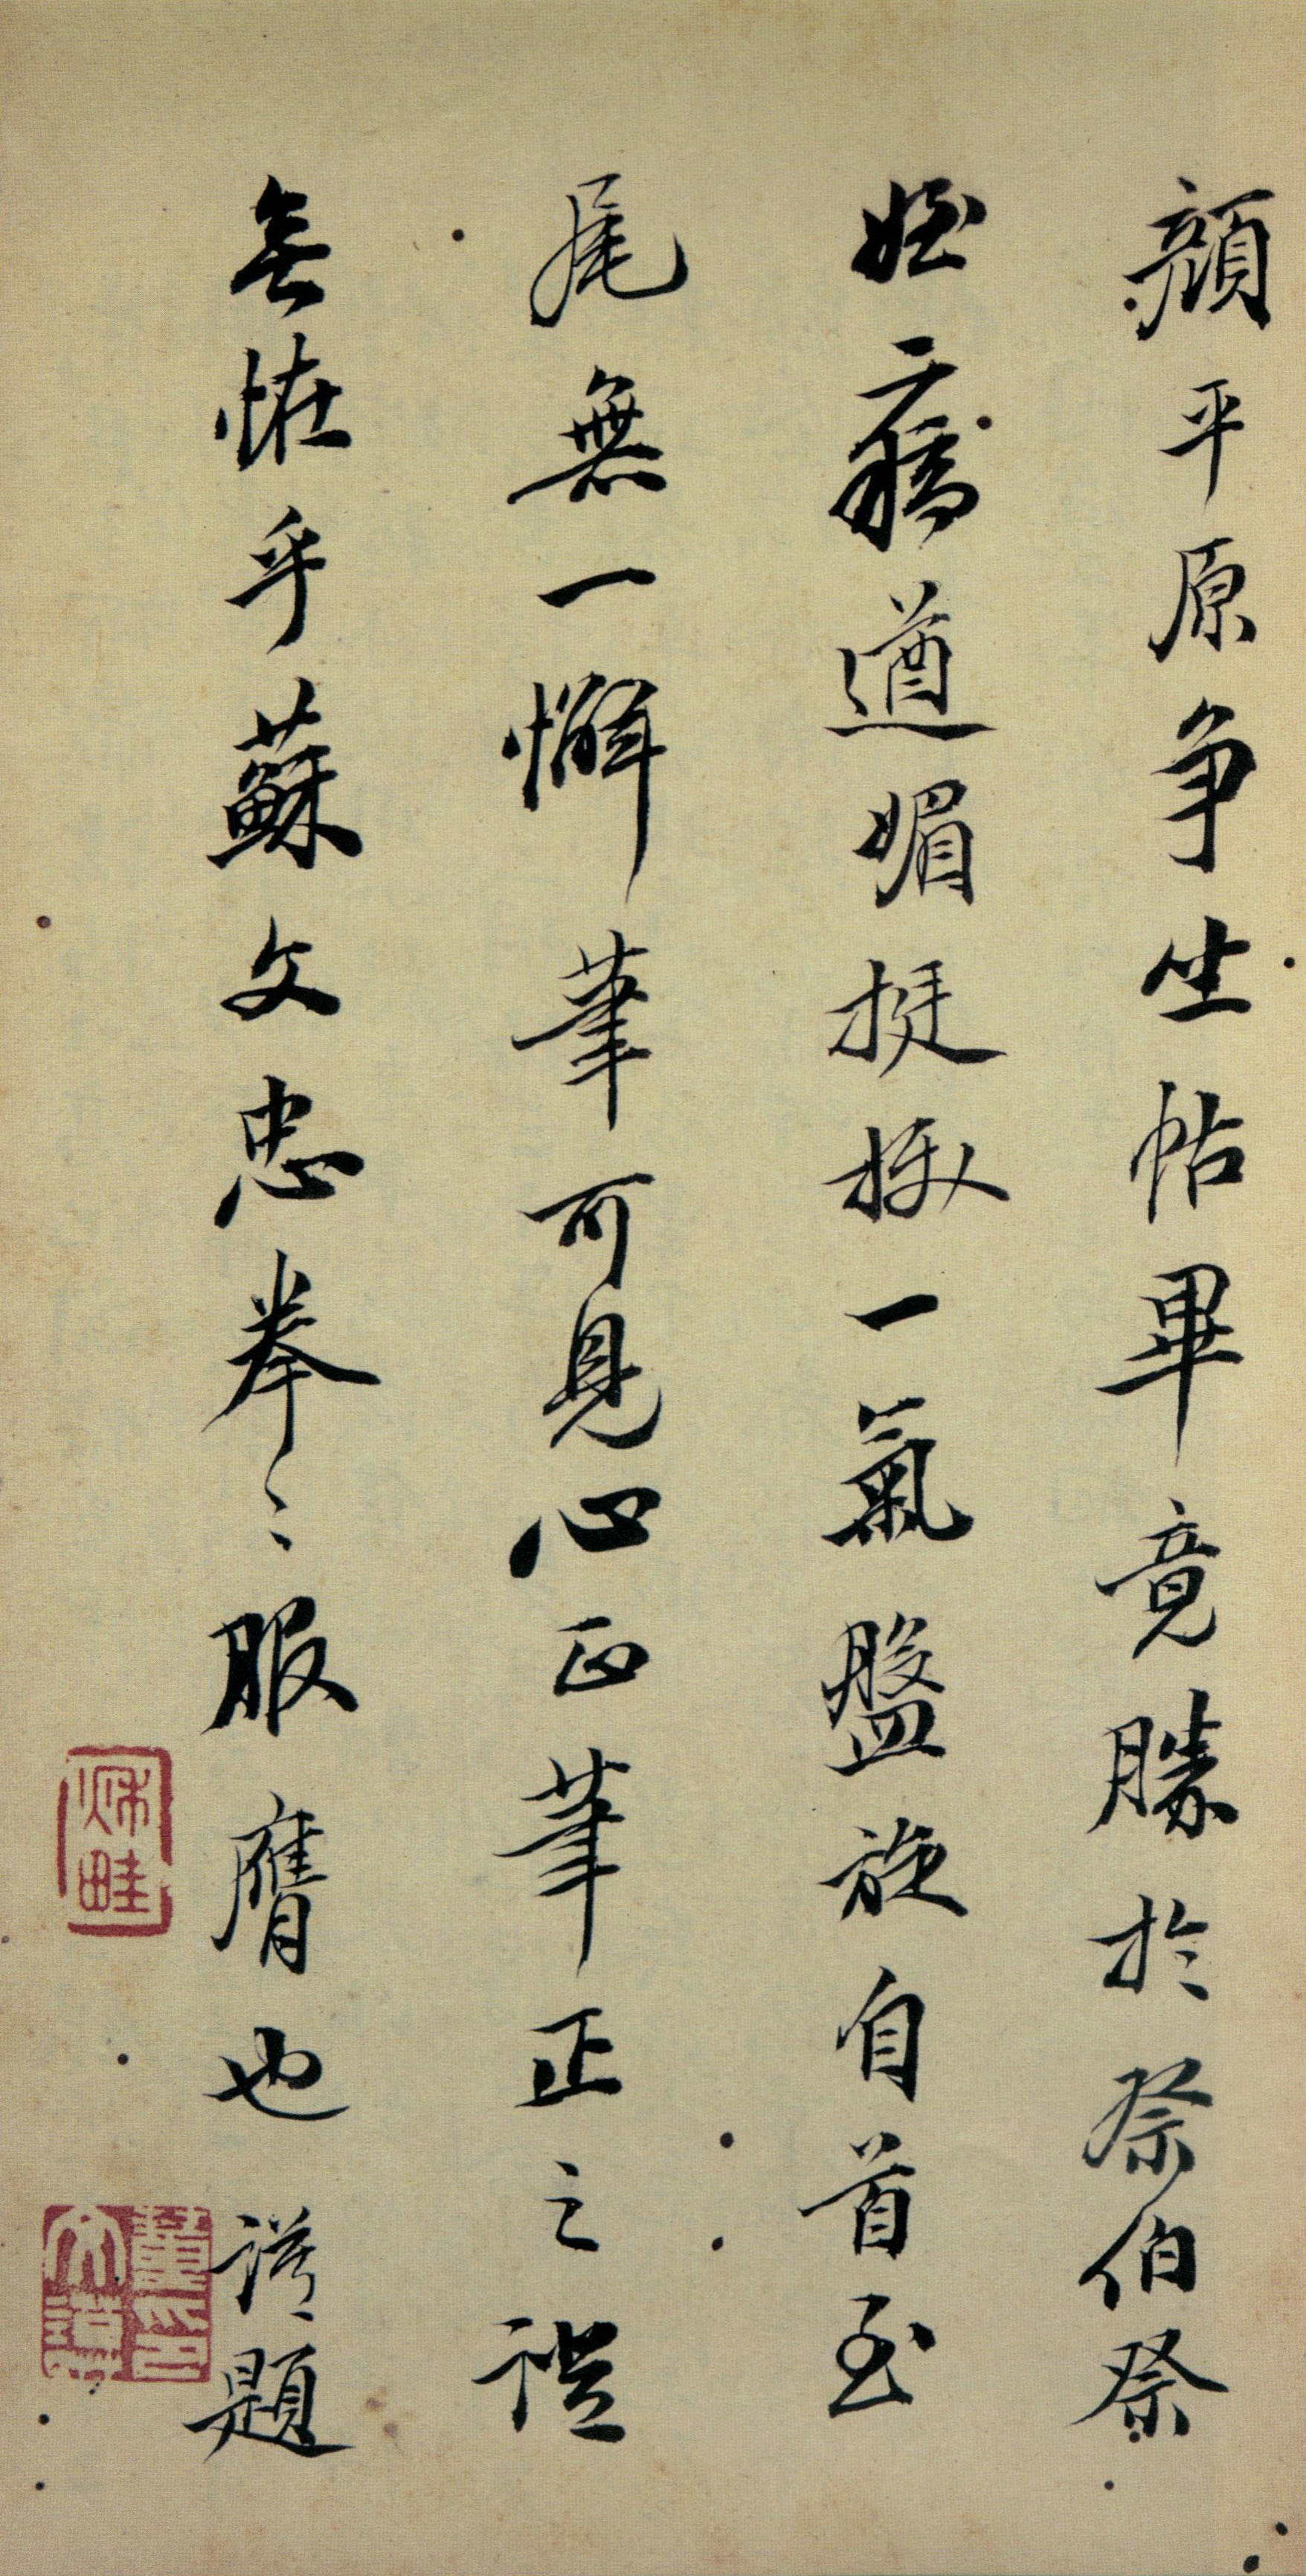 顏平原争坐帖畢竟勝於祭伯祭
姪二稿遒媚挺拔一氣盤旋自首至
尾無一懈筆可見心正筆正之證
無怪乎蘇文忠拳〻服膺也誥題